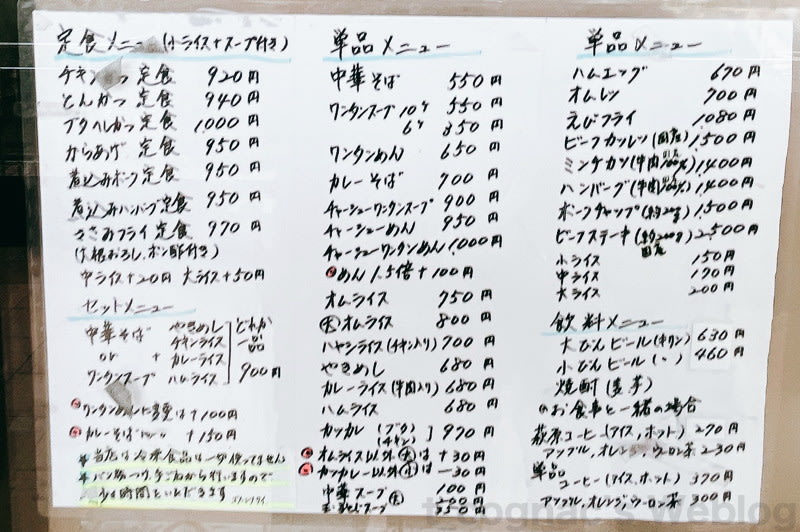 定食メニュー(小ライス+スープ付き)
チキンかつ定食 920円
とんかつ定食 940円
ブタヘレかつ定食 1,000円
からあげ定食 950円
煮込みポーク定食 950円
煮込みハンバーグ定食 950円
ささみフライ定食 970円
(大根おろし、ポン酢付き)
中ライス+20円 大ライス+50円
セットメニュー
中華そば やきめし どれか
or + チキンライス 一品
カレーライス
ワンタンスープ ハムライス 900円
ワンタンめんに変更は+100円
カレーそば 〃 +150円
※当店は冷凍食品は一切使ってません
※パン粉つけ、手ごねから行いますので
少々時間をいただきます
単品メニュー
中華そば 550円
ワンタンスープ 10ケ 550円
6ケ 350円
ワンタンめん 650円
カレーそば 700円
チャーシューワンタンスープ 900円
チャーシューめん 950円
チャーシューワンタンめん 1,000円
めん1.5倍+100円
オムライス 750円
大オムライス 800円
ハヤシライス(チキン入り) 700円
やきめし 680円
カレーライス(牛肉入り) 680円
ハムライス 680円
カツカレー(ブタ)(チキン) 930円
オムライス以外大は+30円
カツカレー以外小は-30円
中華スープ 100円
大 200円
350円
単品メニュー
ハムエッグ 670円
オムレツ 700円
えびフライ 1080円
ビーフカツレツ(国産) 1,500円
ミンチカツ(牛肉100%) 1,400円
ハンバーグ(牛肉100%) 1,400円
ポークチャップ(約200g) 1,500円
ビーフステーキ(約200g)国産 2,500円
小ライス 150円
中ライス 170円
大ライス 200円
飲料メニュー
大びんビール(キリン) 630円
小びんビール(〃) 460円
焼酎(麦芋)
お食事と一緒の場合
萩原コーヒー(アイス、ホット) 270円
アップル、オレンジ、ウーロン茶 230円
単品
コーヒー(アイス、ホット) 370円
アップル、オレンジ、ウーロン茶 300円